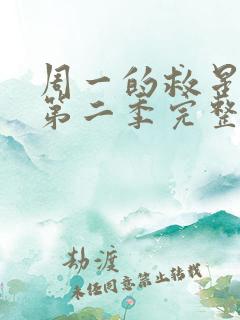 周一的救星
第二季完整
劫渡
未经同意禁止转载